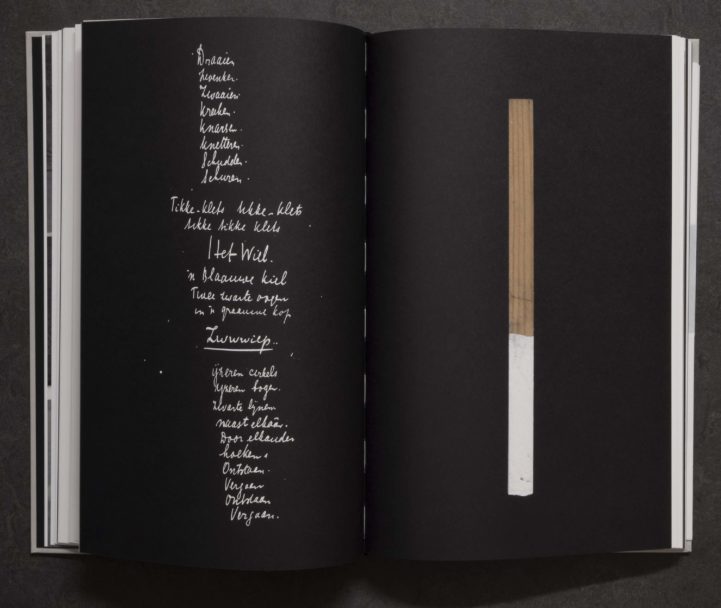 Draaien
Zwenken.
Zwaaien.
Kraken.
Knarsen.
Knetteren.
Schudden.
Schuren.
Tikke-klets tikke-klets
tikke tikke klets
Het Wiel.
'n Blaauwe kiel
Twee zwarte oogen
in 'n graauwe kop
Zwwwiep..
ijzeren cirkels
ijzeren bogen.
Zwarte lijnen
naast elkaâr.
Door elkander
hoeken.
Ontstaan.
Vergaan
Ontstaan
Vergaan.